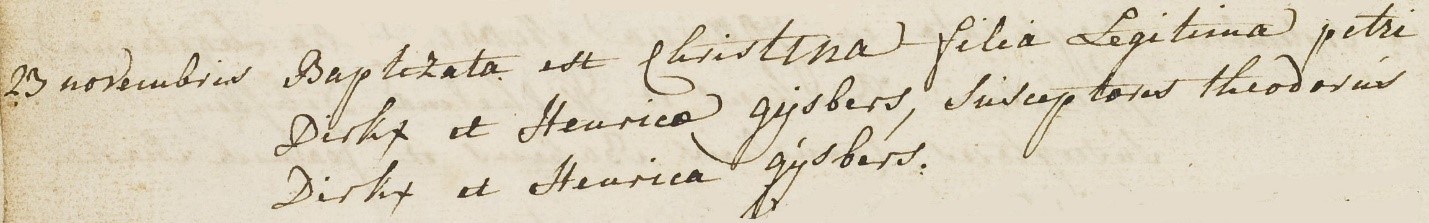 23 novembris Baptizata est Christina filia Legitima petri
Dirkx et Henricæ gijsbers, Susceptores theodorus
Dirkx et Henrica gijsbers.